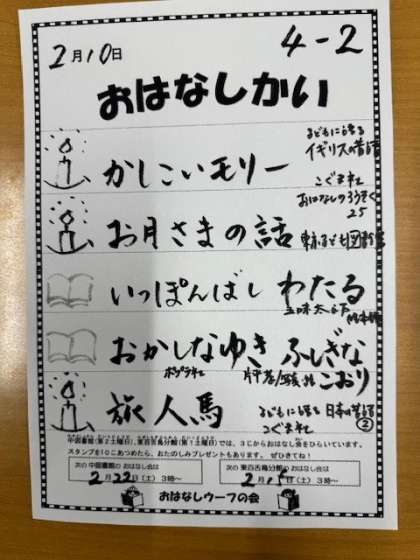 2月10日
4-2
おはなしかい
かしこいモリー
子どもに語る
イギリスの昔話
こぐま社
お月さまの話
おはなしのろうそく
25
東京子ども図書館
いっぽんばし わたる
五味太郎
おかしなゆき ふしぎな
こおり
ポプラ社
片平孝/写真・文
旅人馬
子どもに語る 日本の昔話
②
こぐま社
中図書館(第2土曜日)、東百舌鳥分館(第1土曜日)では、3じからおはなし会をひらいています。
スタンプを10こあつめたら、おたのしみプレゼントもあります。 ぜひきてね!
次の 中図書館の おはなし会は
2月22日(土)3時~
次の 東百舌鳥分館の おはなし会は
2月15日(土)3時~
おはなしウーフの会